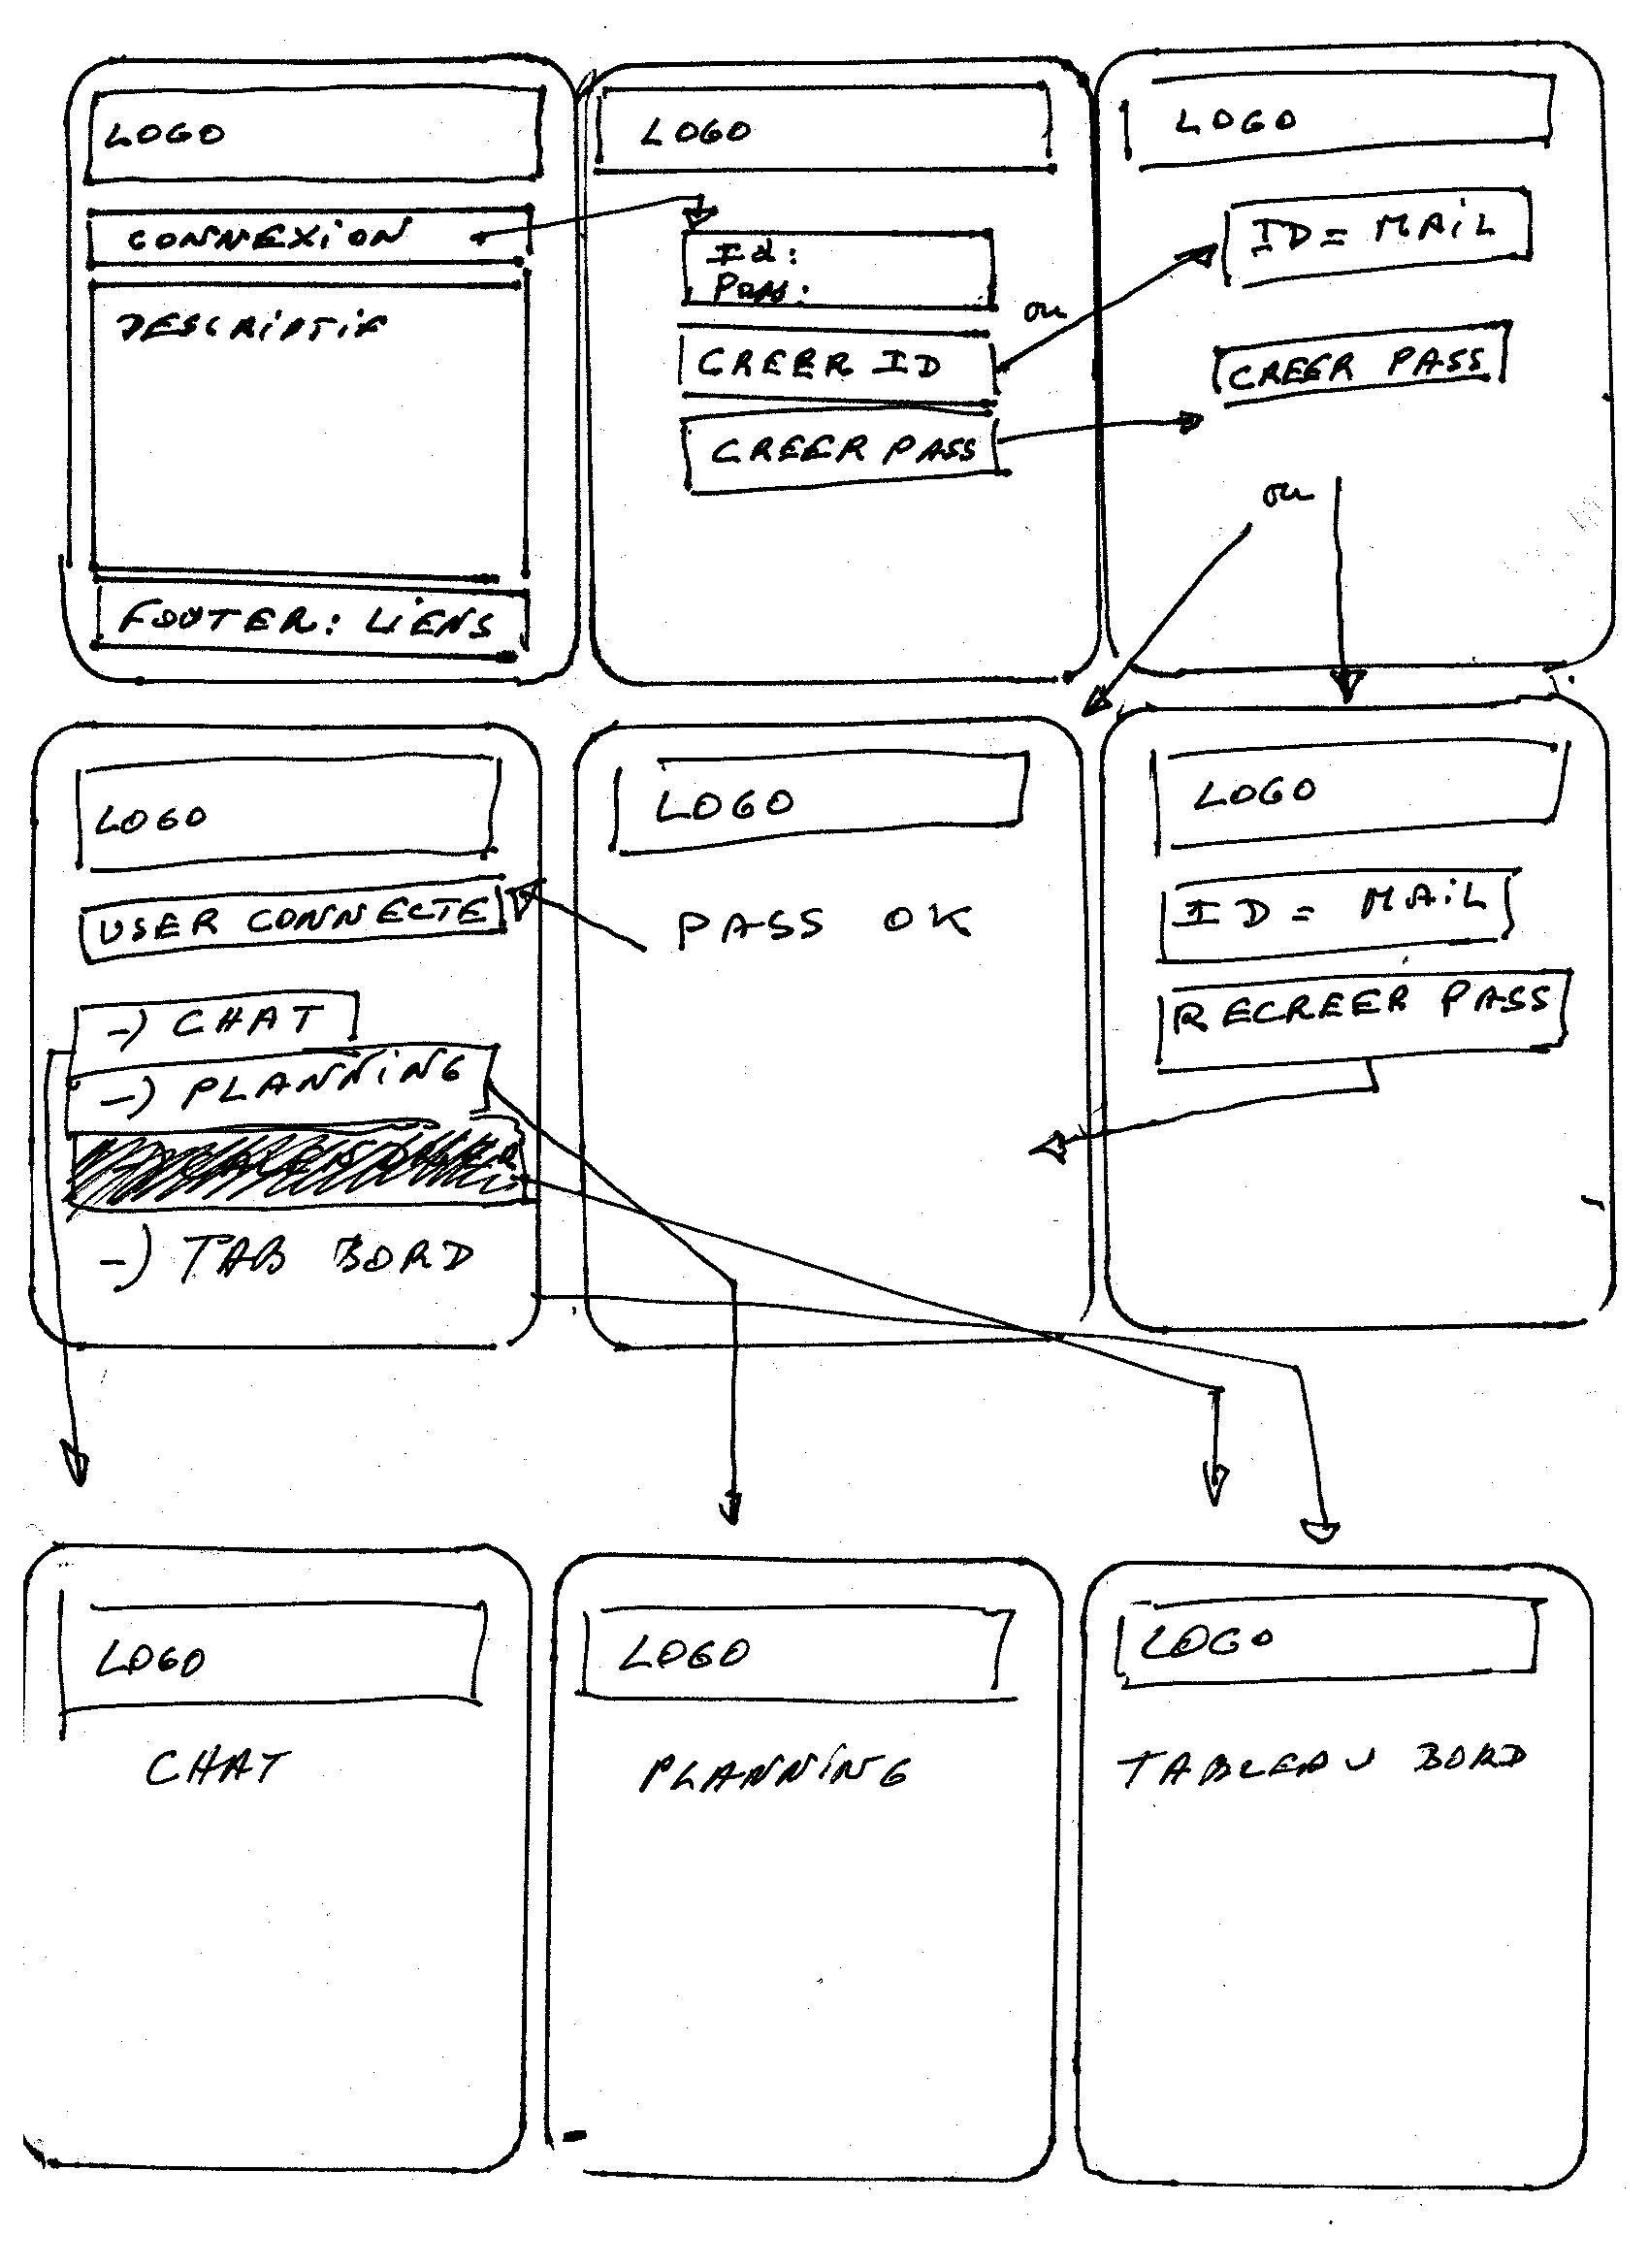 LOGO
CONNEXION
DESCRIPTIF
FOOTER: LIENS
LOGO
Id:
Pass:
ou
CREER ID
CREER PASS
LOGO
ID = MAIL
CREER PASS
ou
LOGO
USER CONNECTE
-) CHAT
-) PLANNING
-) TAB BORD
LOGO
PASS OK
LOGO
ID = MAIL
RECREER PASS
LOGO
CHAT
LOGO
PLANNING
LOGO
TABLEAU BORD